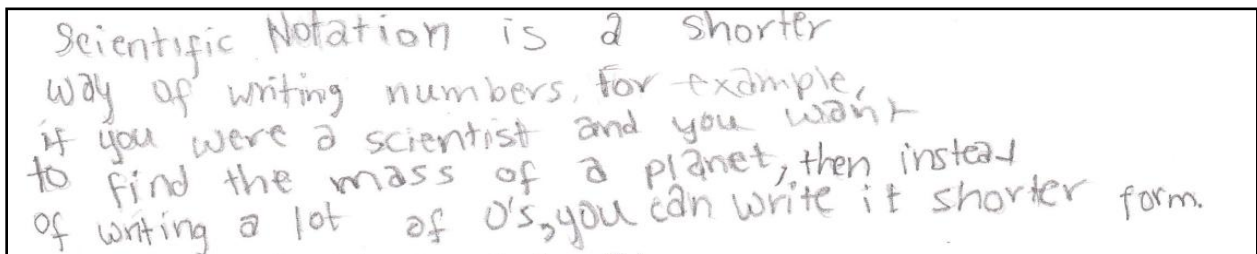 Scientific Notation is a shorter
way of writing numbers. for example,
if you were a scientist and you want
to find the mass of a planet, then instead
of writing a lot of 0's, you can write it shorter form.